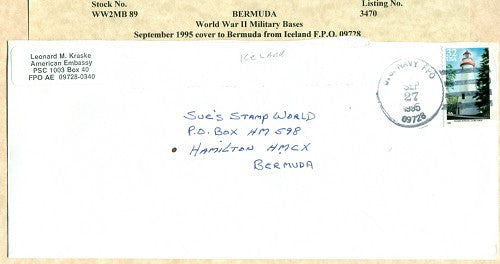 Stock No. Listing No.
WW2MB 89 BERMUDA 3470
World War II Military Bases
September 1995 cover to Bermuda from Iceland F.P.O. 09728
ICELAND
Leonard M. Kraske
American Embassy
PSC 1003 Box 40
FPO AE 09728-0340
U.S. NAVY FPO
SEP
27
1995
09728
32
USA
SUE'S STAMP WORLD
P.O. BOX HM 598
HAMILTON HMCX
BERMUDA